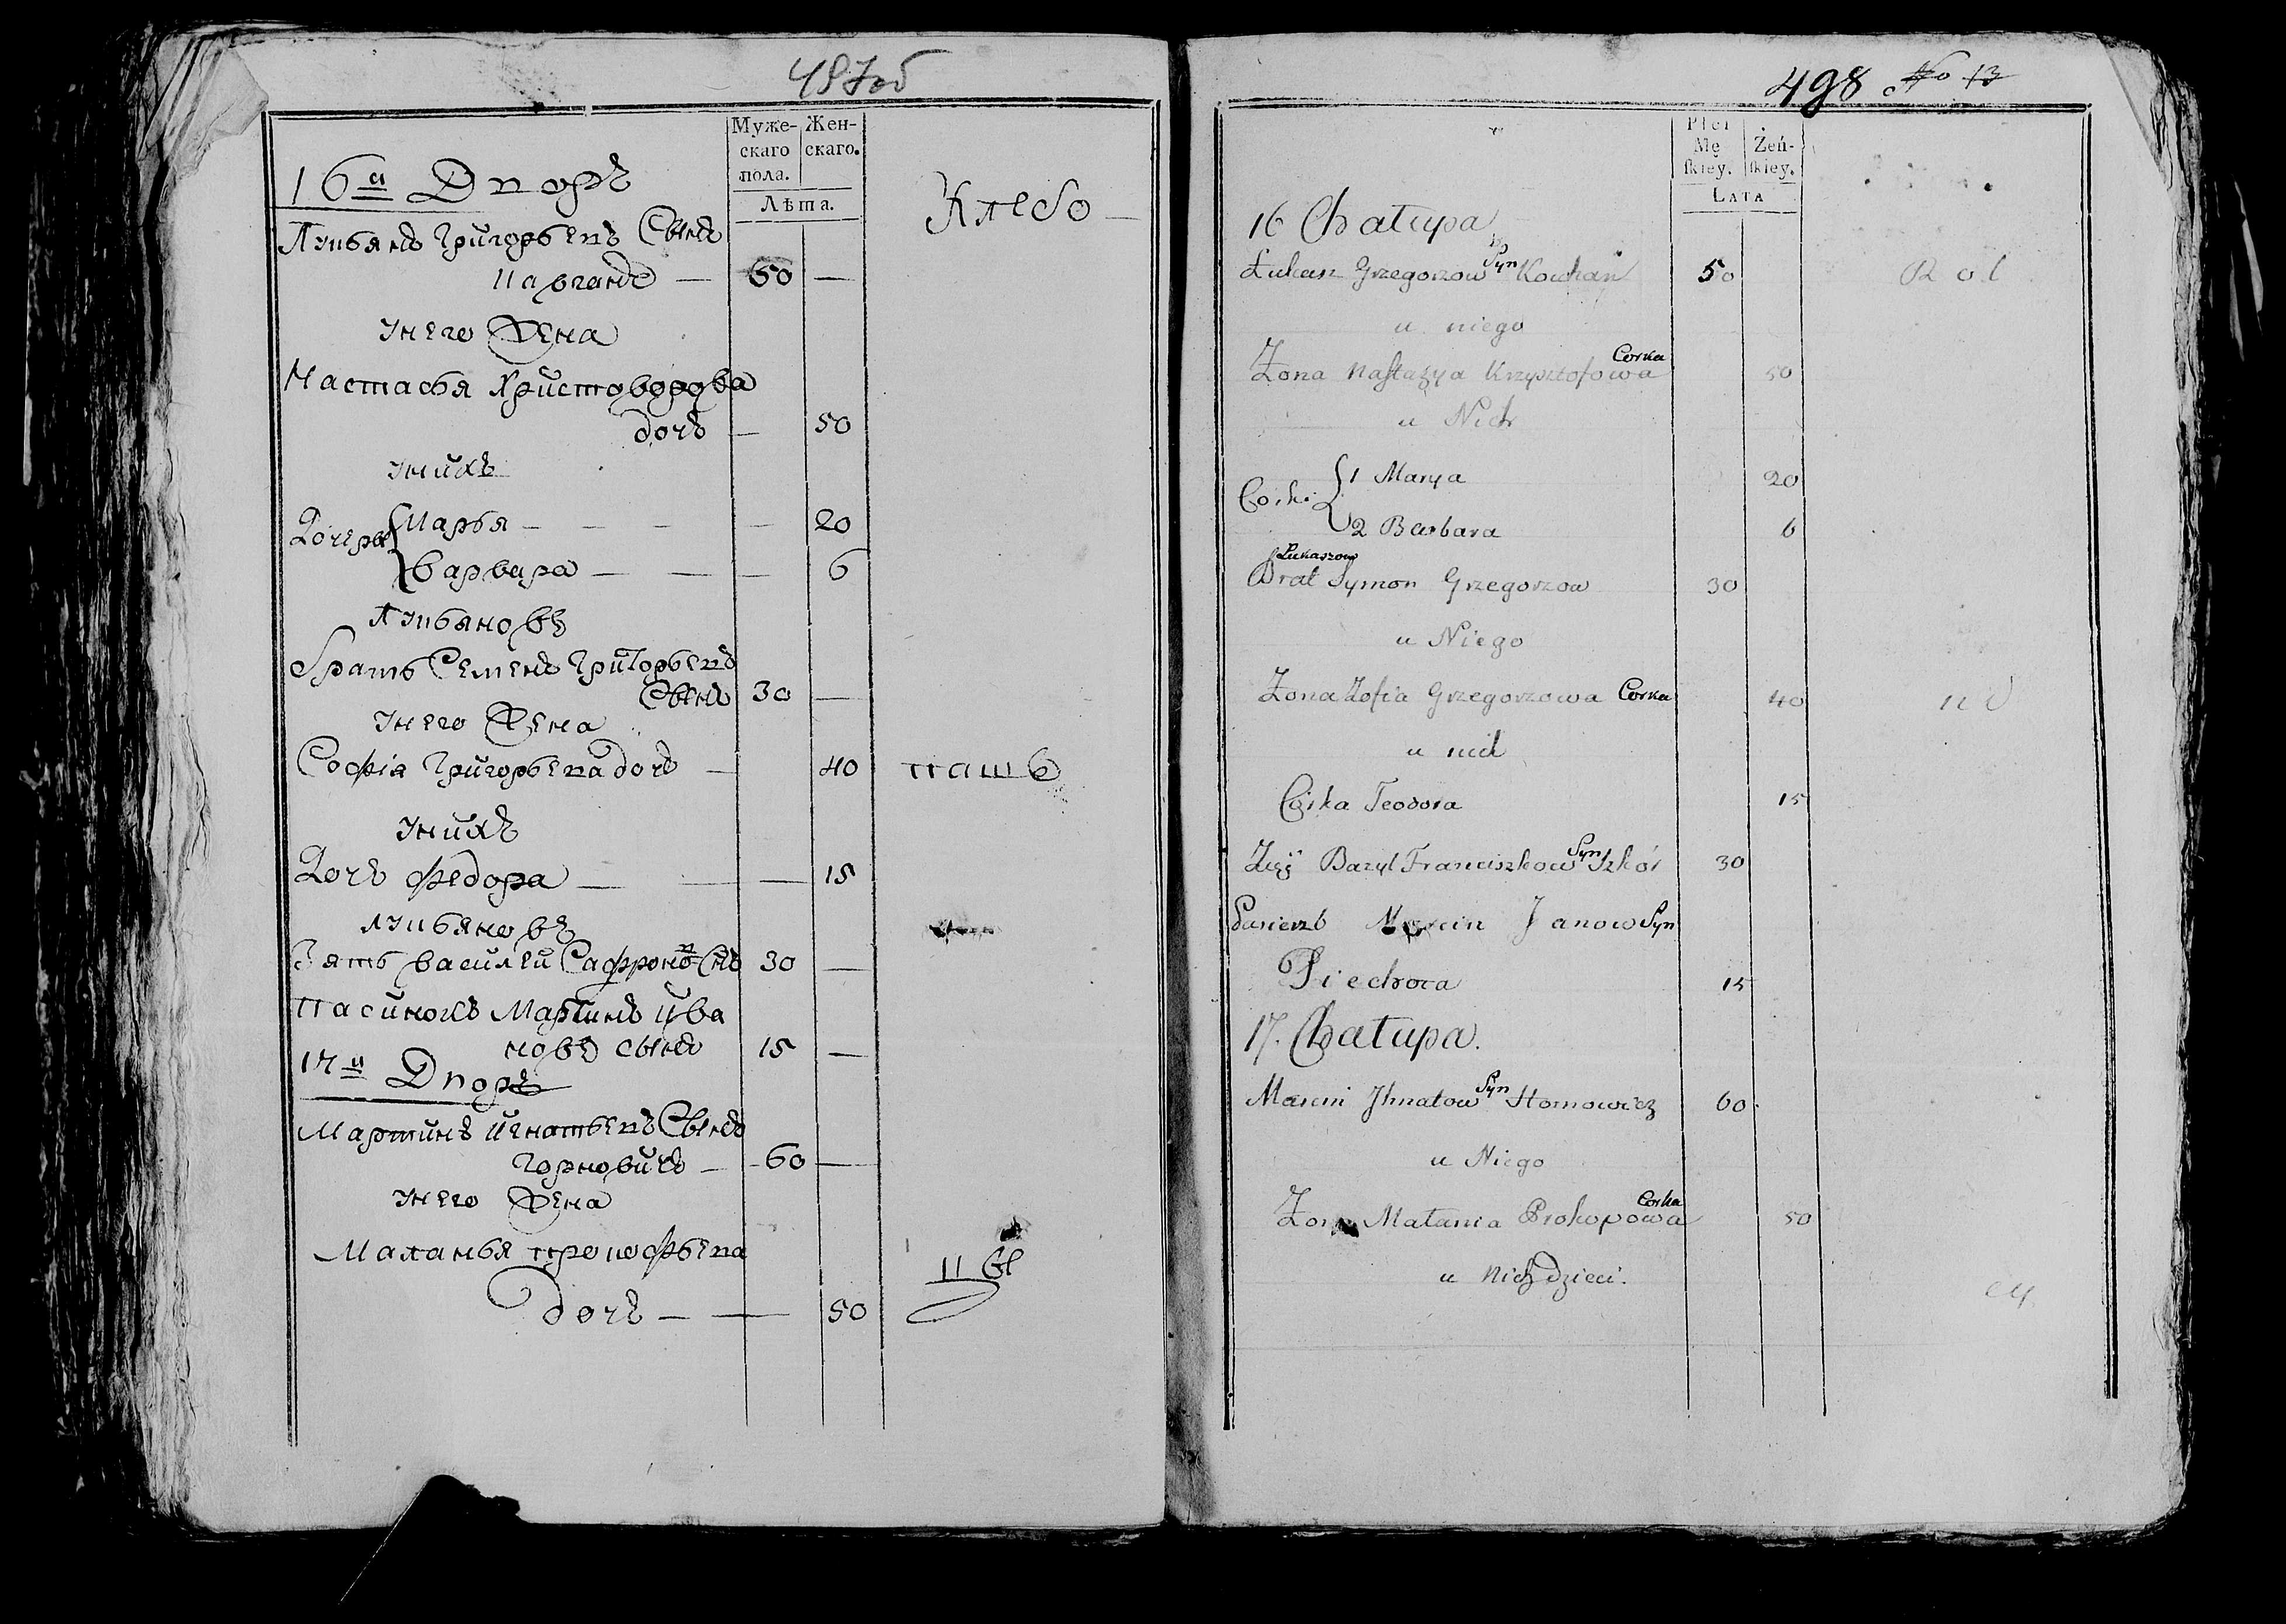 497об
Муже-
скаго
пола.
Жен-
скаго.
Лѣта.
16й Дворъ
Хлебо
Лукьянъ Григорьевъ Сынъ
50 —
У него Жена
Настасья Христофорова
дочь — 50
У нихъ
Дочери { Марья — — — — 20
Варвара — — — 6
Лукьяновъ
Братъ Семенъ Григорьевъ
Сынъ 30 —
У него Жена
Софія Григорьева дочь — 40 паш
У нихъ
Дочь Федора — — — 15
Лукьяновъ
Зять Василей Сафроновъ Снъ 30 —
Пасинокъ Мартинъ Ива
новъ сынъ 15 —
17й Дворъ
Мартинъ Игнатьевъ Сынъ
Горновичъ — 60 —
У него Жена
Маланья Прокофьева
дочь — — 50
498 No 13
Płci
Mę
ſkiey.
Żeń-
ſkiey.
Lata
16 Chałupa
Łukasz Grzegorzow Syn Kochan 50 Rol
u niego
Zona Naſtazya Krzysztofowa Corka 50
u Nich
Corki { 1 Marya 20
2 Barbara 6
Łukaszow
Brat Symon Grzegorzow 30
u Niego
Zona Zofia Grzegorzowa Corka 40 ni
u nich
Córka Teodora 15
Zięć Bazyl Franciszkow Syn 30
Pasierzb Marcin Janow Syn
Piechota 15
17. Chałupa.
Marcin Ihnatow Syn Hornowicz 60
u Niego
Zona Małania Prokopowa Corka 50
u Nich dzieci.
cy